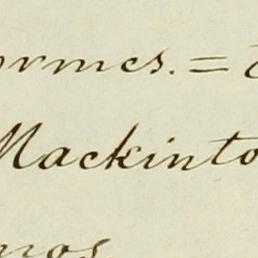 ormes. =
Mackinto
mos